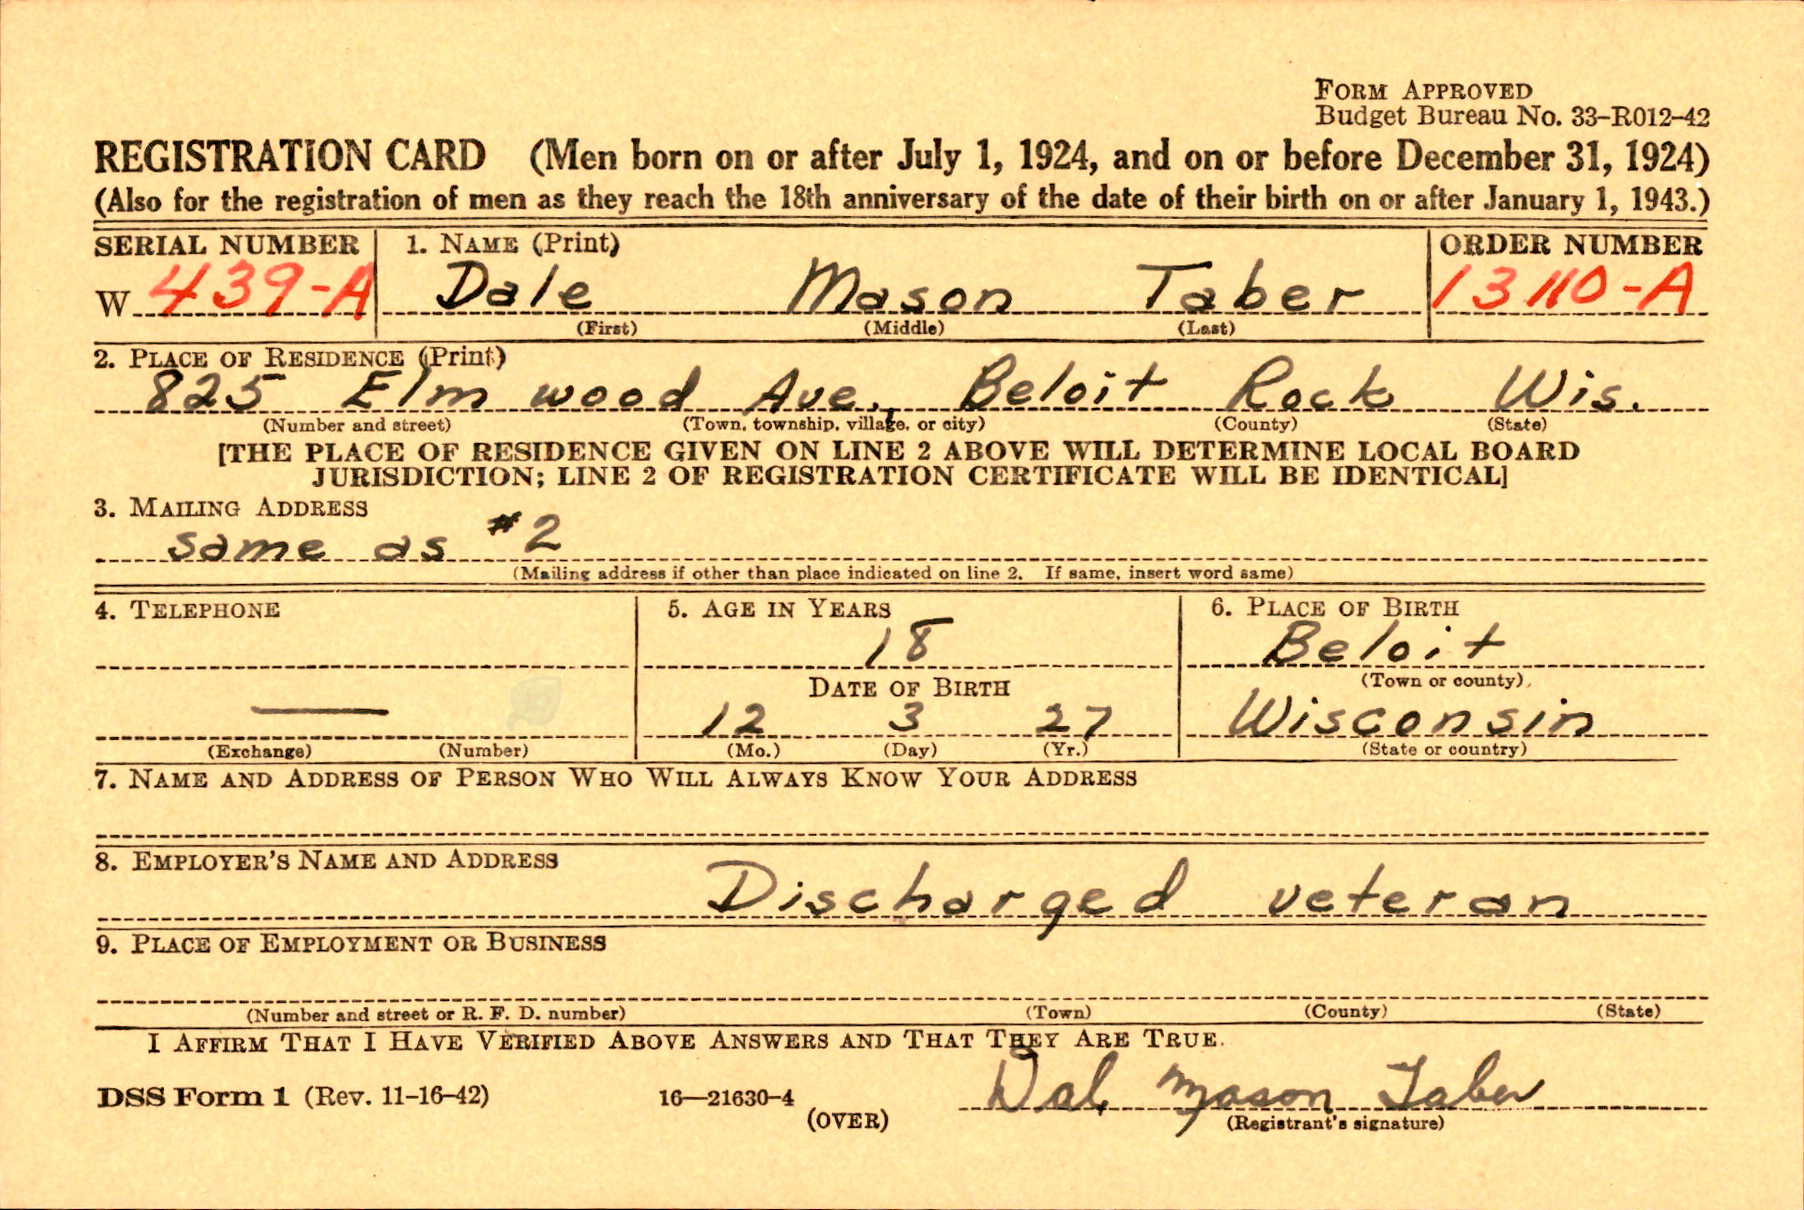 FORM APPROVED
Budget Bureau No. 33-R012-42
REGISTRATION CARD (Men born on or after July 1, 1924, and on or before December 31, 1924)
(Also for the registration of men as they reach the 18th anniversary of the date of their birth on or after January 1, 1943.)
SERIAL NUMBER 1. NAME (Print) ORDER NUMBER
W 439-A Dale Mason Taber 13110-A
(First) (Middle) (Last)
2. PLACE OF RESIDENCE (Print)
825 Elm wood Ave, Beloit Rock Wis.
(Number and street) (Town, township, village, or city) (County) (State)
[THE PLACE OF RESIDENCE GIVEN ON LINE 2 ABOVE WILL DETERMINE LOCAL BOARD
JURISDICTION; LINE 2 OF REGISTRATION CERTIFICATE WILL BE IDENTICAL]
3. MAILING ADDRESS
same as #2
(Mailing address if other than place indicated on line 2. If same, insert word same)
4. TELEPHONE 5. AGE IN YEARS 6. PLACE OF BIRTH
18 Beloit
DATE OF BIRTH (Town or county)
— 12 3 27 Wisconsin
(Exchange) (Number) (Mo.) (Day) (Yr.) (State or country)
7. NAME AND ADDRESS OF PERSON WHO WILL ALWAYS KNOW YOUR ADDRESS
8. EMPLOYER'S NAME AND ADDRESS
Discharged veteran
9. PLACE OF EMPLOYMENT OR BUSINESS
(Number and street or R. F. D. number) (Town) (County) (State)
I AFFIRM THAT I HAVE VERIFIED ABOVE ANSWERS AND THAT THEY ARE TRUE.
DSS Form 1 (Rev. 11-16-42) 16—21630-4 Dale Mason Taber
(OVER) (Registrant's signature)